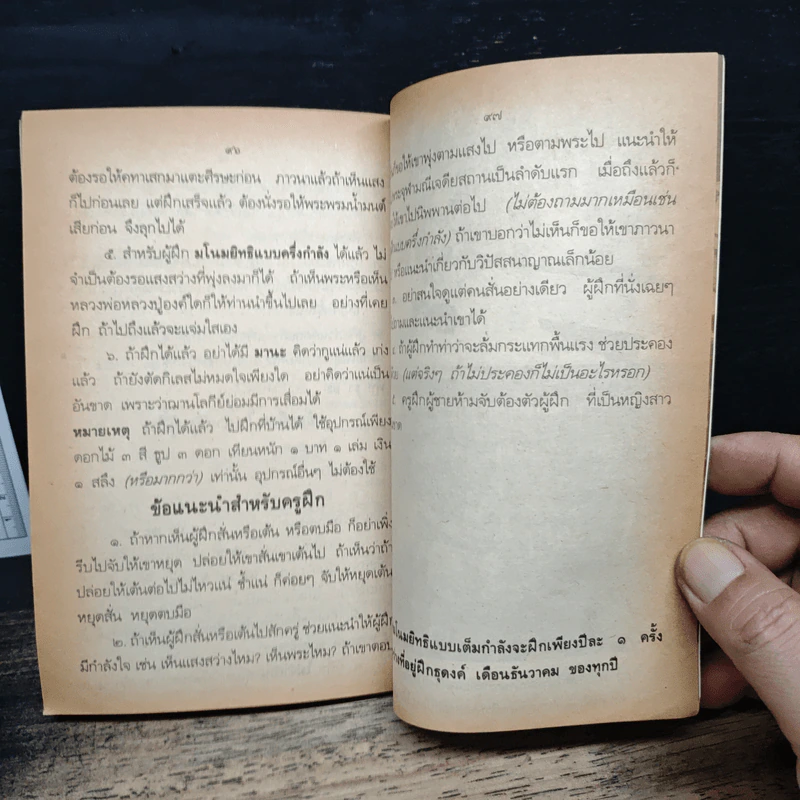 ๙๖
ต้องรอให้คทาเสกมาแตะศีรษะก่อน ภาวนาแล้วถ้าเห็นแสง
ก็ไปก่อนเลย แต่ฝึกเสร็จแล้ว ต้องนั่งรอให้พระพรมน้ำมนต์
เสียก่อน จึงลุกไปได้
๕. สำหรับผู้ฝึก มโนมยิทธิแบบครึ่งกำลัง ได้แล้ว ไม่
จำเป็นต้องรอแสงสว่างที่พุ่งลงมาก็ได้ ถ้าเห็นพระหรือเห็น
หลวงพ่อหลวงปู่องค์ใดก็ให้ท่านนำขึ้นไปเลย อย่างที่เคย
ฝึก ถ้าไปถึงแล้วจะแจ่มใสเอง
๖. ถ้าฝึกได้แล้ว อย่าได้มี มานะ คิดว่ากูแน่แล้ว เก่ง
แล้ว ถ้ายังตัดกิเลสไม่หมดใจเพียงใด อย่าคิดว่าแน่เป็น
อันขาด เพราะว่าฌานโลกีย์ย่อมมีการเสื่อมได้
หมายเหตุ ถ้าฝึกได้แล้ว ไปฝึกที่บ้านได้ ใช้อุปกรณ์เพียง
ดอกไม้ ๓ สี ธูป ๓ ดอก เทียนหนัก ๑ บาท ๑ เล่ม เงิน
๑ สลึง (หรือมากกว่า) เท่านั้น อุปกรณ์อื่นๆ ไม่ต้องใช้
ข้อแนะนำสำหรับครูฝึก
๑. ถ้าหากเห็นผู้ฝึกสั่นหรือเต้น หรือตบมือ ก็อย่าเพิ่ง
รีบไปจับให้เขาหยุด ปล่อยให้เขาสั่นเขาเต้นไป ถ้าเห็นว่าถ้า
ปล่อยให้เต้นต่อไปไม่ไหวแน่ ช้ำแน่ ก็ค่อยๆ จับให้หยุดเต้น
หยุดสั่น หยุดตบมือ
๒. ถ้าเห็นผู้ฝึกสั่นหรือเต้นไปสักครู่ ช่วยแนะนำให้ผู้ฝึก
มีกำลังใจ เช่น เห็นแสงสว่างไหม? เห็นพระไหม? ถ้าเขาตอบ
๙๗
ขอให้เขาพุ่งตามแสงไป หรือตามพระไป แนะนำให้
พระจุฬามณีเจดียสถานเป็นลำดับแรก เมื่อถึงแล้วก็
ให้เขาไปนิพพานต่อไป (ไม่ต้องถามมากเหมือนเช่น
แบบครึ่งกำลัง) ถ้าเขาบอกว่าไม่เห็นก็ขอให้เขาภาวนา
หรือแนะนำเกี่ยวกับวิปัสสนาญาณเล็กน้อย
อย่าสนใจดูแต่คนสั่นอย่างเดียว ผู้ฝึกที่นั่งเฉยๆ
ถามและแนะนำเขาได้
ถ้าผู้ฝึกทำท่าว่าจะล้มกระแทกพื้นแรง ช่วยประคอง
(แต่จริงๆ ถ้าไม่ประคองก็ไม่เป็นอะไรหรอก)
ครูฝึกผู้ชายห้ามจับต้องตัวผู้ฝึก ที่เป็นหญิงสาว
มโนมยิทธิแบบเต็มกำลังจะฝึกเพียงปีละ ๑ ครั้ง
ที่อยู่ฝึกธุดงค์ เดือนธันวาคม ของทุกปี